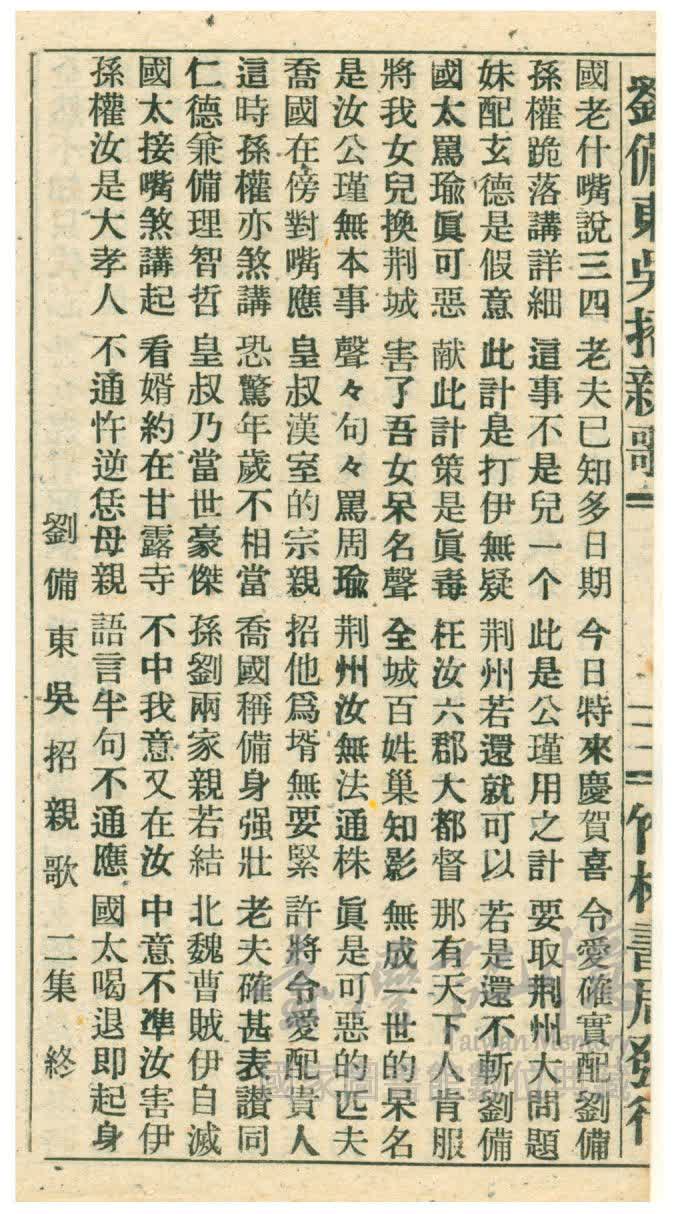 國老什嘴說三四 老夫已知多日期 今日特來慶賀喜 令愛確實配劉備
孫權跪落講詳細 這事不是兒一个 此是公瑾用之計 要取荆州大問題
妹配玄德是假意 此計是打伊無疑 荆州若還就可以 若是還不斬劉備
國太罵瑜眞可惡 献此計策是眞毒 枉汝六郡大都督 那有天下人肯服
將我女兒換荆城 害了吾女呆名聲 全城百姓巢知影 無成一世的呆名
是汝公瑾無本事 聲々句々罵周瑜 荆州汝無法通株 眞是可惡的匹夫
喬國在傍對嘴應 皇叔漢室的宗親 招他爲壻無要緊 許將令愛配貴人
這時孫權亦煞講 恐驚年歲不相當 喬國稱備身强壯 老夫確甚表讃同
仁德兼備理智哲 皇叔乃當世豪傑 孫劉兩家親若結 北魏曹賊伊自滅
國太接嘴煞講起 看婿約在甘露寺 不中我意又在汝 中意不凖汝害伊
孫權汝是大孝人 不通忤逆恁母親 語言半句不通應 國太喝退即起身
劉備東吳招親歌 二集 終
劉備東吳招親歌 二 竹林書局發行
臺灣記憶
Taiwan Memory
國家圖書館數位典藏